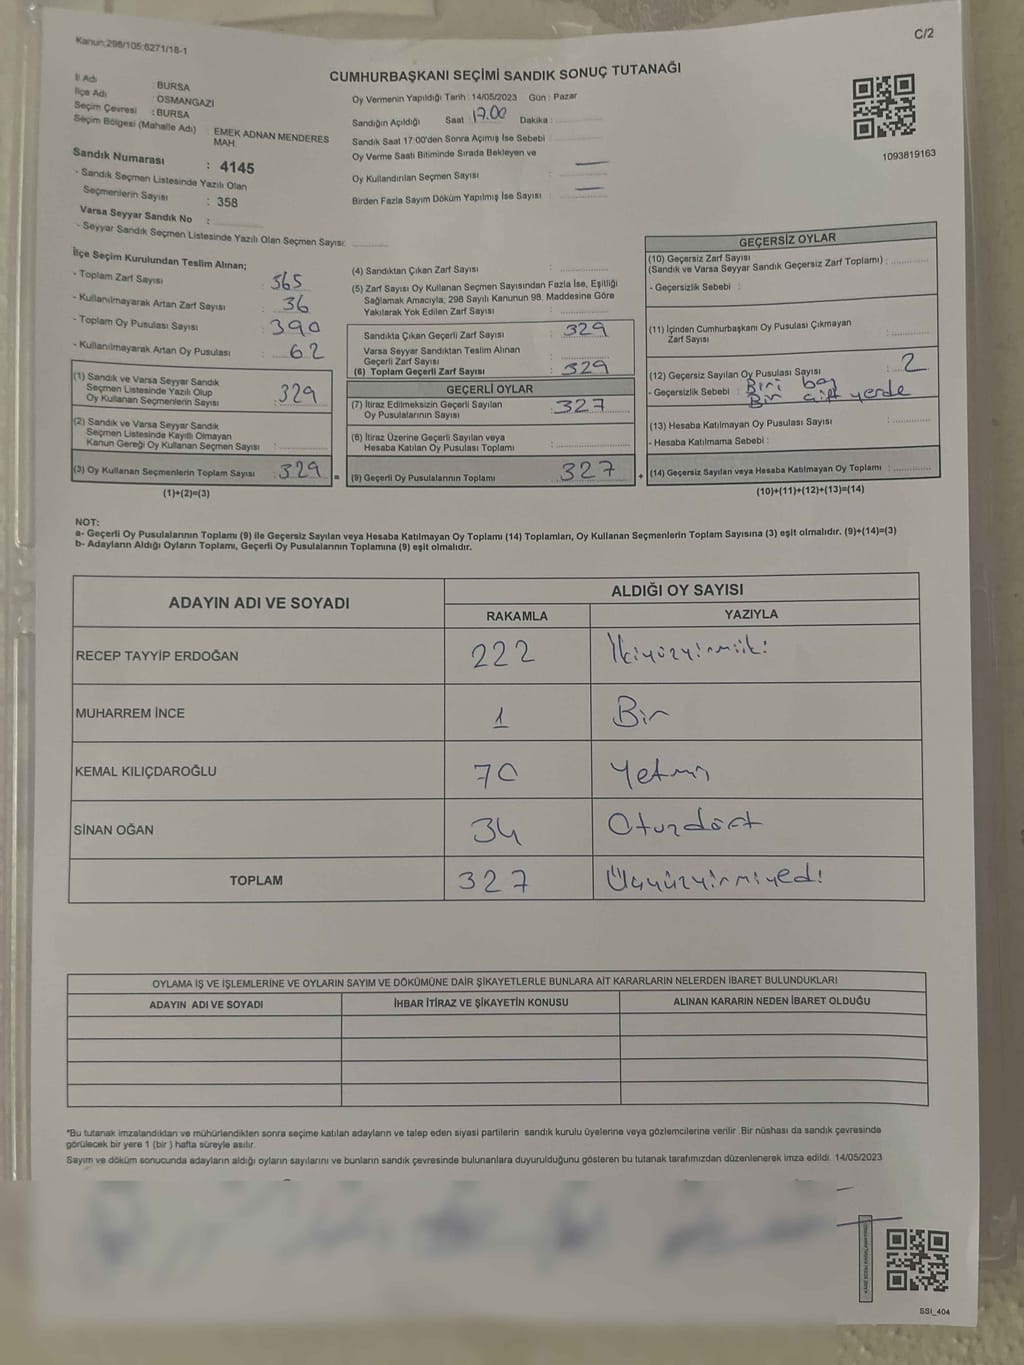 Kanun:298/105;6271/18-1
C/2
CUMHURBAŞKANI SEÇİMİ SANDIK SONUÇ TUTANAĞI
İl Adı : BURSA
İlçe Adı : OSMANGAZİ
Seçim Çevresi : BURSA
Seçim Bölgesi (Mahalle Adı) : EMEK ADNAN MENDERES MAH.
Sandık Numarası : 4145
- Sandık Seçmen Listesinde Yazılı Olan
Seçmenlerin Sayısı : 358
Varsa Seyyar Sandık No :
- Seyyar Sandık Seçmen Listesinde Yazılı Olan Seçmen Sayısı:
Oy Vermenin Yapıldığı Tarih : 14/05/2023 Gün : Pazar
Sandığın Açıldığı Saat : 17.00 Dakika :
Sandık Saat 17:00'den Sonra Açımış İse Sebebi :
Oy Verme Saati Bitiminde Sırada Bekleyen ve
Oy Kullandırılan Seçmen Sayısı : —
Birden Fazla Sayım Döküm Yapılmış İse Sayısı : —
1093819163
İlçe Seçim Kurulundan Teslim Alınan;
- Toplam Zarf Sayısı : 365
- Kullanılmayarak Artan Zarf Sayısı : 36
- Toplam Oy Pusulası Sayısı : 390
- Kullanılmayarak Artan Oy Pusulası : 62
(1) Sandık ve Varsa Seyyar Sandık
Seçmen Listesinde Yazılı Olup
Oy Kullanan Seçmenlerin Sayısı : 329
(2) Sandık ve Varsa Seyyar Sandık
Seçmen Listesinde Kayıtlı Olmayan
Kanun Gereği Oy Kullanan Seçmen Sayısı :
(3) Oy Kullanan Seçmenlerin Toplam Sayısı : 329 =
(1)+(2)=(3)
(4) Sandıktan Çıkan Zarf Sayısı :
(5) Zarf Sayısı Oy Kullanan Seçmen Sayısından Fazla İse, Eşitliği
Sağlamak Amacıyla; 298 Sayılı Kanunun 98. Maddesine Göre
Yakılarak Yok Edilen Zarf Sayısı :
Sandıkta Çıkan Geçerli Zarf Sayısı : 329
Varsa Seyyar Sandıktan Teslim Alınan
Geçerli Zarf Sayısı :
(6) Toplam Geçerli Zarf Sayısı : 329
GEÇERLİ OYLAR
(7) İtiraz Edilmeksizin Geçerli Sayılan
Oy Pusulalarının Sayısı : 327
(8) İtiraz Üzerine Geçerli Sayılan veya
Hesaba Katılan Oy Pusulası Toplamı :
(9) Geçerli Oy Pusulalarının Toplamı : 327 +
GEÇERSİZ OYLAR
(10) Geçersiz Zarf Sayısı
(Sandık ve Varsa Seyyar Sandık Geçersiz Zarf Toplamı) :
- Geçersizlik Sebebi :
(11) İçinden Cumhurbaşkanı Oy Pusulası Çıkmayan
Zarf Sayısı :
(12) Geçersiz Sayılan Oy Pusulası Sayısı : 2
- Geçersizlik Sebebi : Biri boş
Biri çift yerde
(13) Hesaba Katılmayan Oy Pusulası Sayısı :
- Hesaba Katılmama Sebebi :
(14) Geçersiz Sayılan veya Hesaba Katılmayan Oy Toplamı :
(10)+(11)+(12)+(13)=(14)
NOT:
a- Geçerli Oy Pusulalarının Toplamı (9) ile Geçersiz Sayılan veya Hesaba Katılmayan Oy Toplamı (14) Toplamları, Oy Kullanan Seçmenlerin Toplam Sayısına (3) eşit olmalıdır. (9)+(14)=(3)
b- Adayların Aldığı Oyların Toplamı, Geçerli Oy Pusulalarının Toplamına (9) eşit olmalıdır.
ADAYIN ADI VE SOYADI
ALDIĞI OY SAYISI
RAKAMLA YAZIYLA
RECEP TAYYİP ERDOĞAN 222 İkiyüzyirmiiki
MUHARREM İNCE 1 Bir
KEMAL KILIÇDAROĞLU 70 Yetmiş
SİNAN OĞAN 34 Otuzdört
TOPLAM 327 Üçyüzyirmiyedi
OYLAMA İŞ VE İŞLEMLERİNE VE OYLARIN SAYIM VE DÖKÜMÜNE DAİR ŞİKAYETLERLE BUNLARA AİT KARARLARIN NELERDEN İBARET BULUNDUKLARI
ADAYIN ADI VE SOYADI İHBAR İTİRAZ VE ŞİKAYETİN KONUSU ALINAN KARARIN NEDEN İBARET OLDUĞU
*Bu tutanak imzalandıktan ve mühürlendikten sonra seçime katılan adayların ve talep eden siyasi partilerin sandık kurulu üyelerine veya gözlemcilerine verilir .Bir nüshası da sandık çevresinde
görülecek bir yere 1 (bir ) hafta süreyle asılır.
Sayım ve döküm sonucunda adayların aldığı oyların sayılarını ve bunların sandık çevresinde bulunanlara duyurulduğunu gösteren bu tutanak tarafımızdan düzenlenerek imza edildi. 14/05/2023
SSI_404